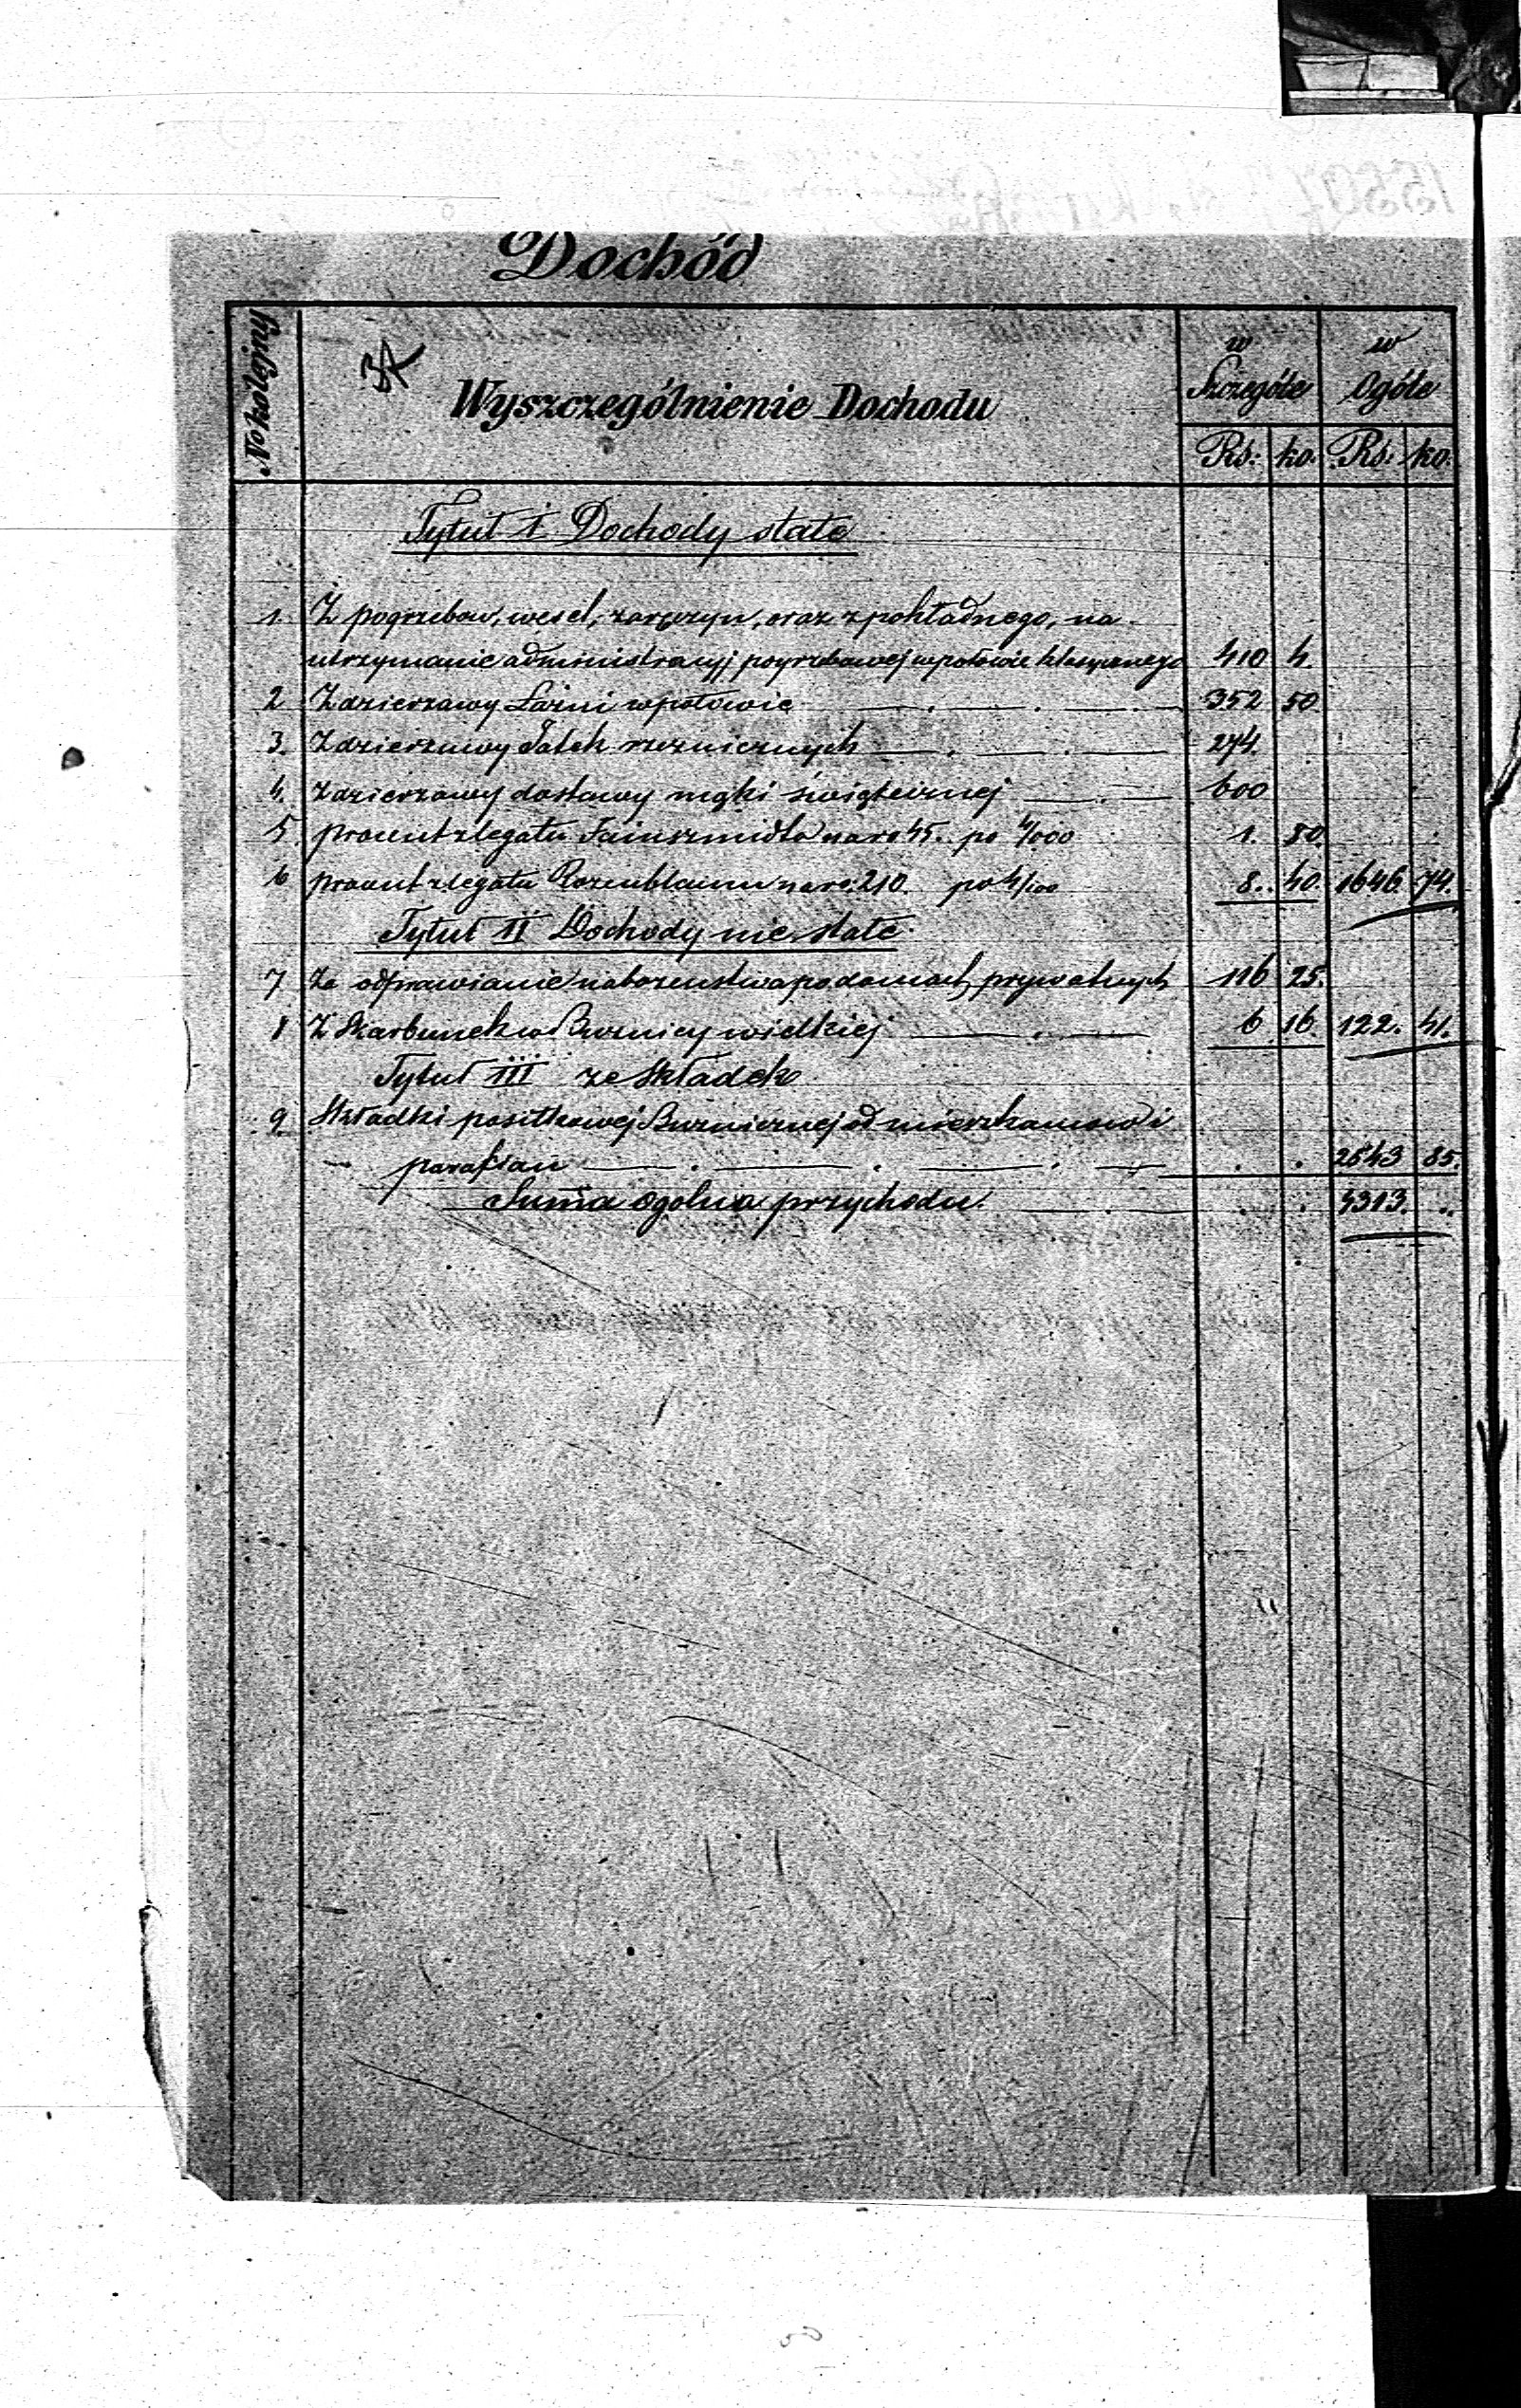 Dochód
No kolejny
Wyszczególnienie Dochodu
w Szczególe
w Ogóle
Rs: ko. Rs: ko.
Tytuł I Dochody stałe
1. Z pogrzebow, wesel, zaręczyn, oraz z pokładnego, na
utrzymanie administracyj pogrzebowej w połowie klasycznego 410 4.
2 Z dzierzawy Łaźni w połowie 352 50
3. Z dzierzawy Jatek rzezniczych 274.
4. Z dzierzawy dostawy mąki świątecznej 600
5. procent z legatu Fainszmidta na rs 45. po 4/000 1. 80.
6 procent z legatu Rozenblama na rs: 210. po 4/100 8. 40. 1646. 74.
Tytuł II Dochody nie stałe
7 Za odprawianie nabozenstwa po domach prywatnych 116 25.
8 Z Skarbunek w Buznicy wielkiej 6 16 122. 41.
Tytuł III ze składek
9. Składki posiłkowej Buznicznej od mieszkancow i
parafian 2543 85.
Suma ogolna przychodu. 4313.